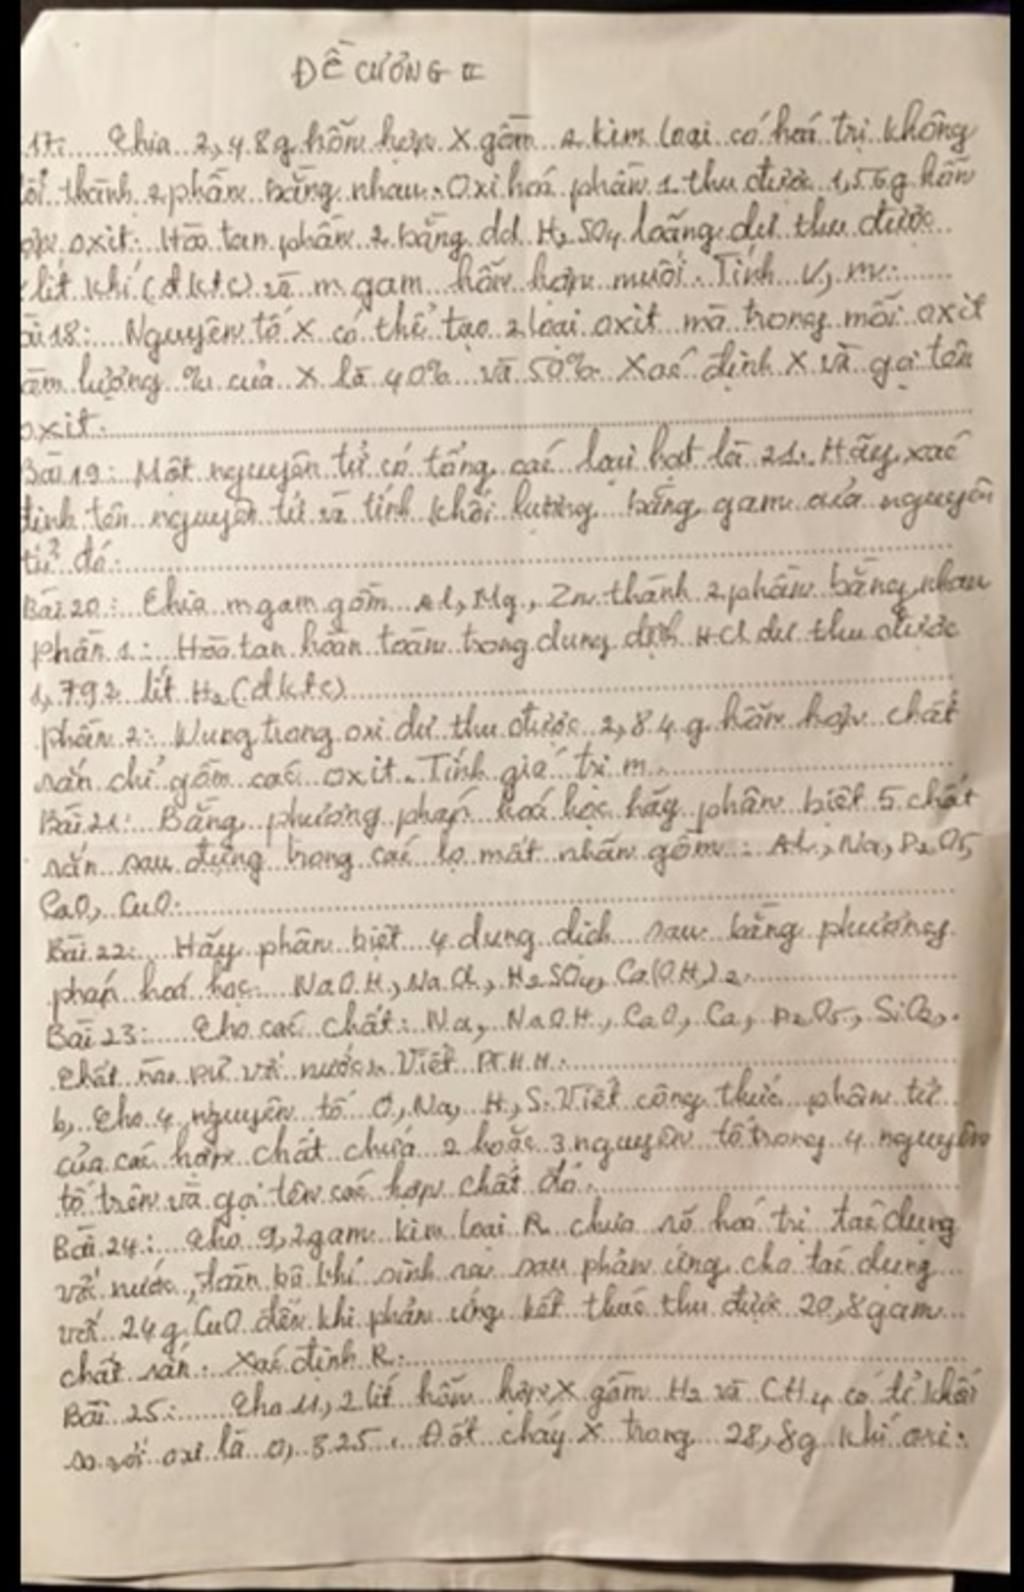 ĐỀ CƯƠNG II
17: Chia 2,48g hỗn hợp X gồm 2 kim loại có hoá trị không
đổi thành 2 phần bằng nhau. Oxi hoá phần 1 thu được 1,56g hỗn
hợp oxit. Hoà tan phần 2 bằng dd H2SO4 loãng dư thu được
lít khí (đktc) và m gam hỗn hợp muối. Tính V, m.
ài 18: Nguyên tố X có thể tạo 2 loại oxit mà trong mỗi oxit
àm lượng % của X là 40% và 50%. Xác định X và gọi tên
oxit.
Bài 19: Một nguyên tử có tổng các loại hạt là 21. Hãy xác
định tên nguyên tử và tính khối lượng bằng gam của nguyên
tử đó.
Bài 20: Chia m gam gồm Al, Mg, Zn thành 2 phần bằng nhau
phần 1: Hoà tan hoàn toàn trong dung dịch HCl dư thu được
1,792 lít H2 (đktc)
phần 2: Nung trong oxi dư thu được 2,84 g hỗn hợp chất
rắn chỉ gồm các oxit. Tính giá trị m.
Bài 21: Bằng phương pháp hoá học hãy phân biệt 5 chất
rắn sau đựng trong các lọ mất nhãn gồm: Al, Na, P2O5,
CaO, CuO.
Bài 22: Hãy phân biệt 4 dung dịch sau bằng phương
pháp hoá học: NaOH, NaCl, H2SO4, Ca(OH)2.
Bài 23: Cho các chất: Na, NaOH, CaO, Ca, P2O5, SiO2,.
Chất nào pứ với nước. Viết PTHH.
b, Cho 4 nguyên tố O, Na, H, S. Viết công thức phân tử
của các hợp chất chứa 2 hoặc 3 nguyên tố trong 4 nguyên
tố trên và gọi tên các hợp chất đó.
Bài 24: Cho 9,2gam kim loại R chưa rõ hoá trị tác dụng
với nước, toàn bộ khí sinh ra sau phản ứng cho tác dụng
với 24g CuO đến khi phản ứng kết thúc thu được 20,8gam
chất rắn. Xác định R.
Bài 25: Cho 11,2 lít hỗn hợp X gồm H2 và CH4 có tỉ khối
so với oxi là 0,325. Đốt cháy X trong 28,8g khí oxi.